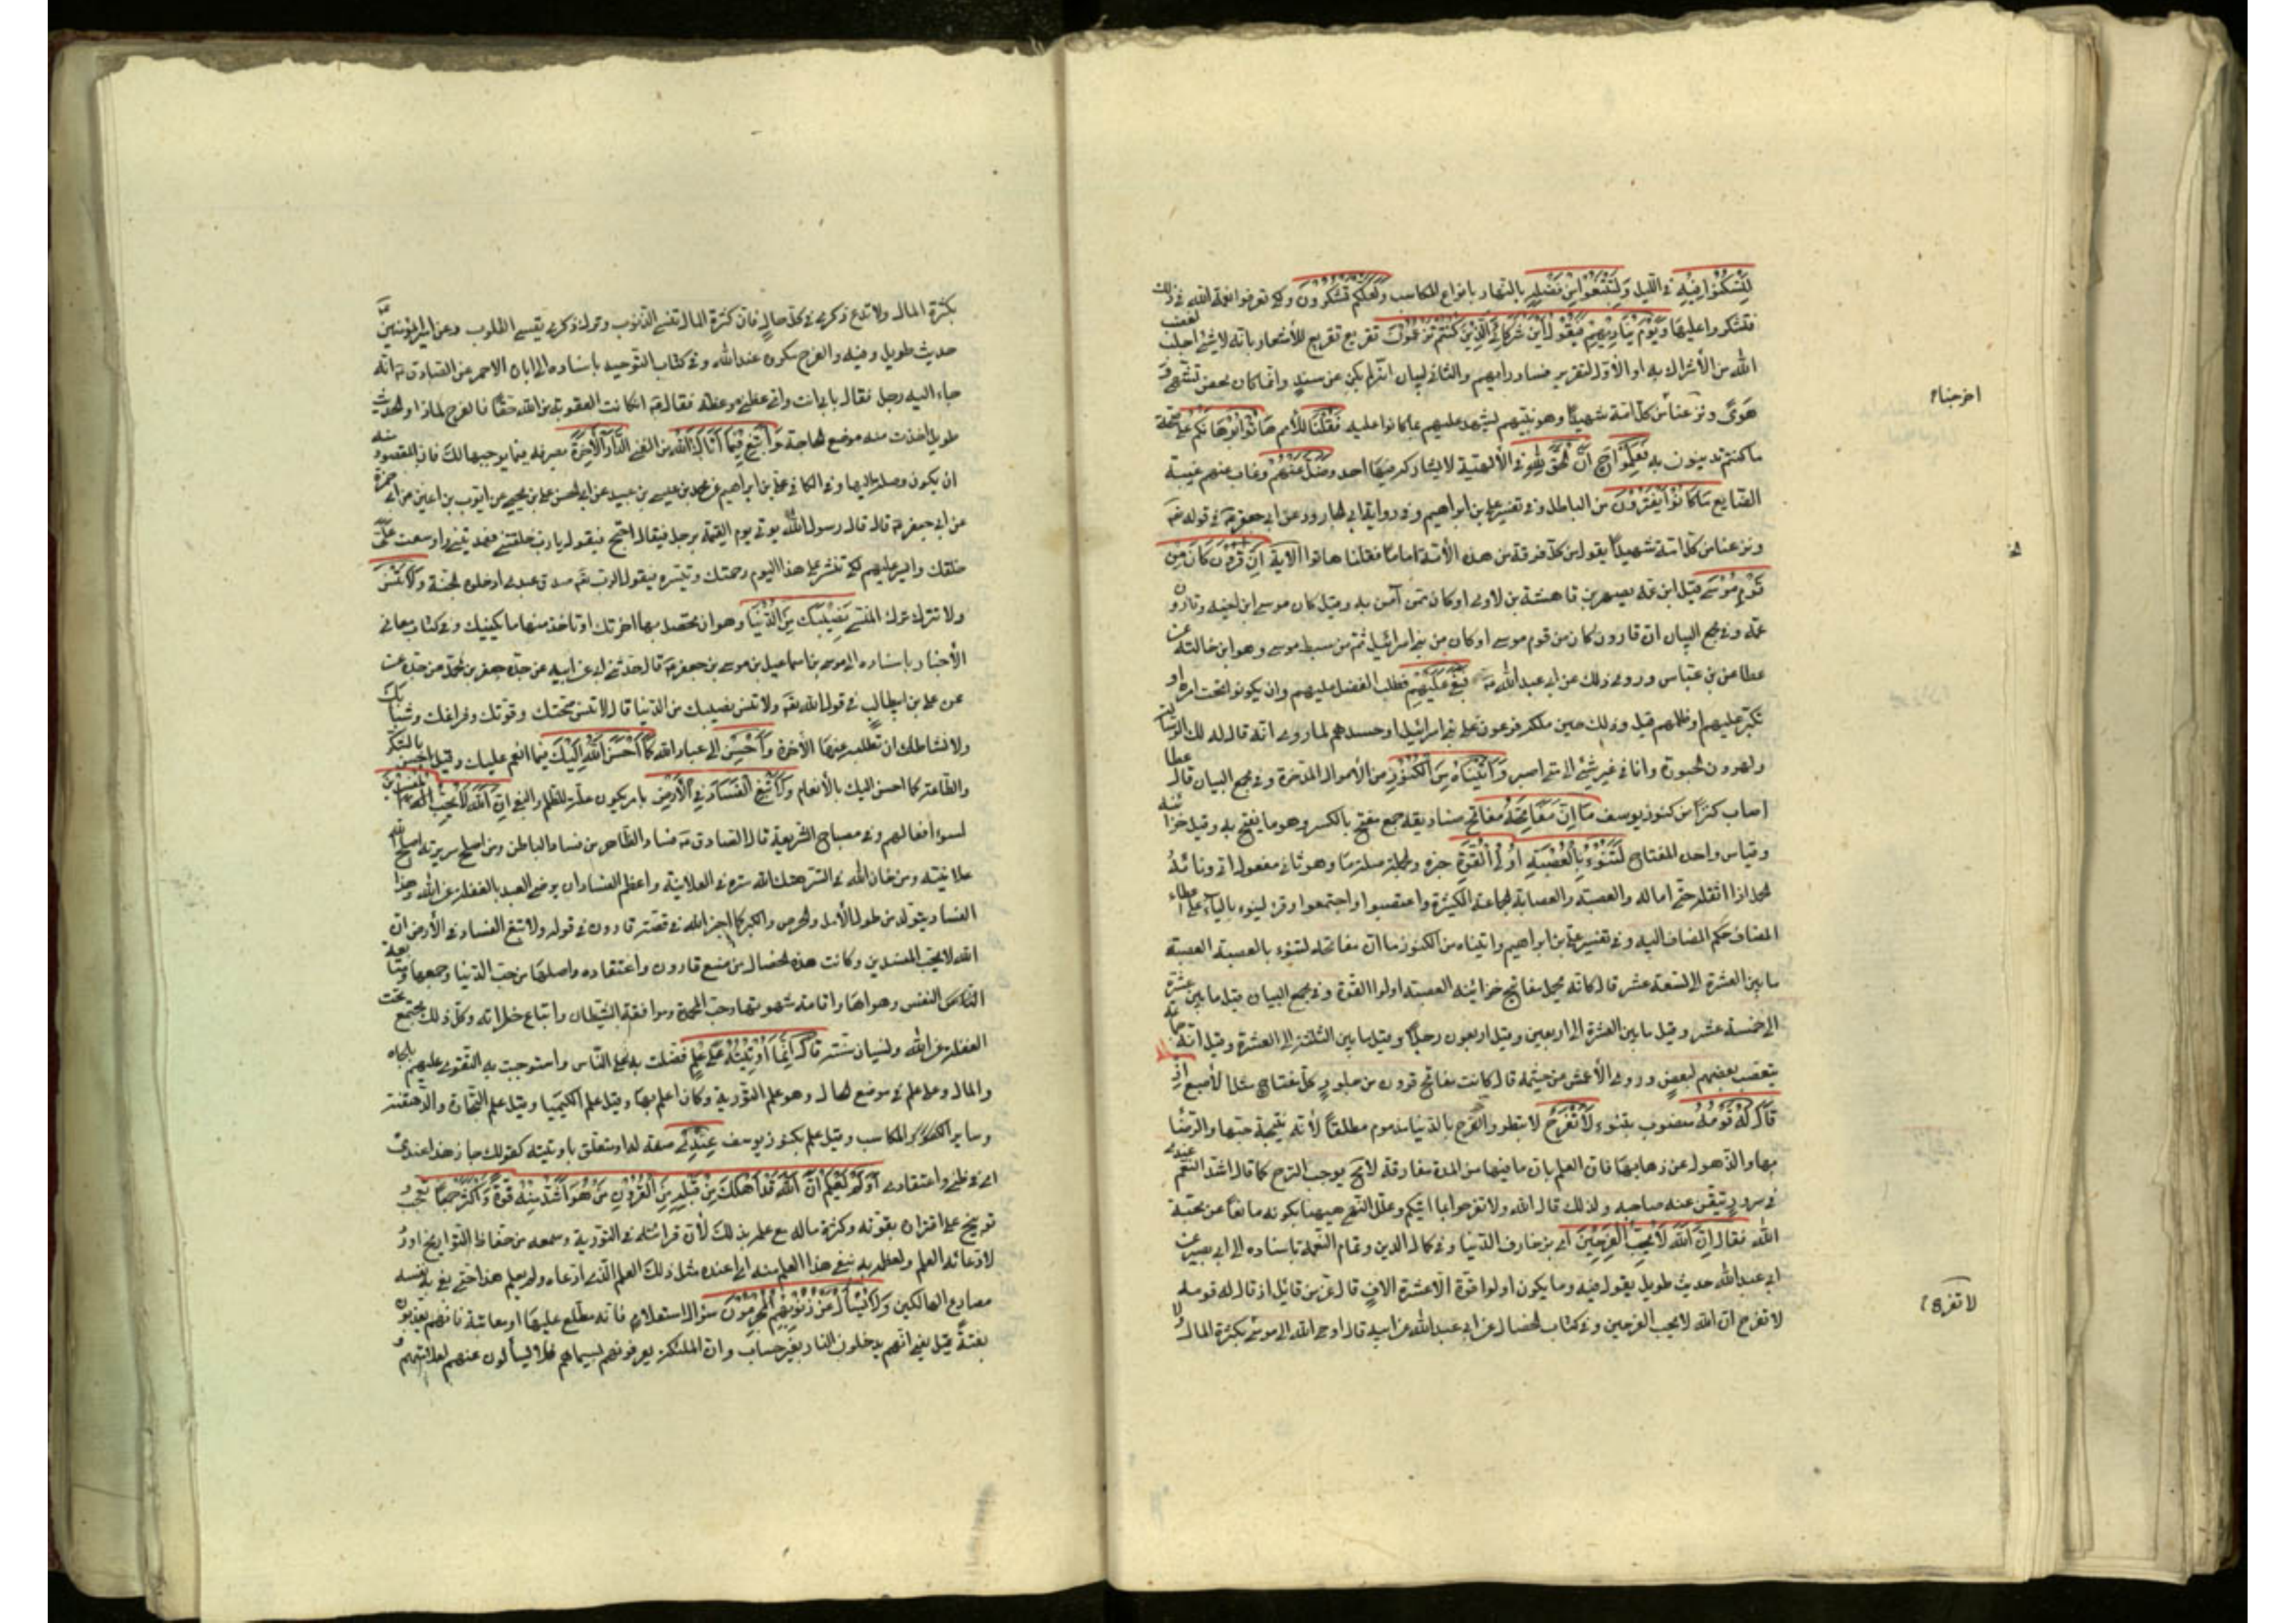 لِتَسْكُنُوا فِيْهِ في الليل وَلِتَبْتَغُوا مِنْ فَضْلِهِ بالنهار بانواع المكاسب وَلَعَلَّكُمْ تَشْكُرُوْنَ ولكي تعرفوا نعمة الله في ذلك
فتشكروا عليها وَيَوْمَ يُنَادِيْهِمْ فَيَقُوْلُ اَيْنَ شُرَكَائِيَ الَّذِيْنَ كُنْتُمْ تَزْعُمُوْنَ تقريع تقريع للأشعار بانه لا شئ اجلب لغضب
الله من الأشراك به او الأوّل لتقرير فساد رايهم والثاني لبيان انه لم يكن عن سند وانما كان محض تشهي و
هوًى ونزعنا من كل امّة شهيدًا وهو نبيهم يشهد عليهم بما كانوا عليه فَقُلْنَا للأمم هَاتُوْا بُرْهَانَكُمْ على صحة
ما كنتم تدينون به فَعَلِمُوْا ح اَنَّ الْحَقَّ لِلّٰهِ في الألهيّة لا يشاركه فيها احد وَضَلَّ عَنْهُمْ وغاب عنهم غيبة
الضايع مَا كَانُوْا يَفْتَرُوْنَ من الباطل وفي تفسير علي بن ابراهيم وفي رواية ابي الجارود عن ابي جعفر في قوله
ونزعنا من كل امّة شهيدًا يقول من كل فرقة من هذه الأمّة امامها فقلنا هاتوا الاية اِنَّ قَارُوْنَ كَانَ مِنْ
قَوْمِ مُوْسٰى قيل ابن عمه يصهر بن قاهث بن لاوى وكان ممن آمن به وقيل كان موسى ابن اخيه وقارون
عمّه وفي مجمع البيان ان قارون كان من قوم موسى اي كان من بني اسرائيل ثم من سبط موسى وهو ابن خالته عن
عطا عن بن عباس وروى ذلك عن ابي عبد الله فَبَغٰى عَلَيْهِمْ فطلب الفضل عليهم وان يكونوا تحت امره او
تكبّر عليهم او ظلمهم قيل وذلك حين ملكه فرعون على بني اسرائيل او حسدهم لما روى انه قال له لك الرسالة
ولهرون الحبورة وانا في غير شئ الى متى اصبر وَاٰتَيْنَاهُ مِنَ الْكُنُوْزِ من الأموال المدّخرة وفي مجمع البيان قال عطا
اصاب كنزًا من كنوز يوسف مَا اِنَّ مَفَاتِحَهُ مفاتح صناديقه جمع مفتح بالكسر وهو ما يفتح به وقيل خزائنه
وقياس واحد المفتاح لَتَنُوْءُ بِالْعُصْبَةِ اُولِى الْقُوَّةِ خبره والجملة صلة ما وهو ثاني مفعولي اتى وناء به
الحمل اذا اثقله حتى اماله والعصبة والعصابة الجماعة الكثيرة واعتصبوا واجتمعوا وقرئ لينوء بالياء على اعطاء
المضاف حكم المضاف اليه وفي تفسير علي بن ابراهيم واتيناه من الكنوز ما ان مفاتحه لتنوء بالعصبة العصبة
ما بين العشرة الى تسعة عشر قال كان يحمل مفاتح خزائنه العصبة اولوا القوة وفي مجمع البيان قيل ما بين عشرة
الى خمسة عشر وقيل ما بين العشرة الى اربعين وقيل اربعون رجلا وقيل ما بين الثلثة الى العشرة وقيل انه جماعة
يتعصب بعضهم لبعض وروى الأعمش عن خيثمة قال كانت مفاتح قارون من جلود كل مفتاح مثل الأصبع اِذْ
قَالَ لَهُ قَوْمُهُ منصوب بتنوء لَا تَفْرَحْ لا تبطر والفرح بالدنيا مذموم مطلقًا لأنه نتيجة حبها والرضا
بها والذهول عن ذهابها فان العلم بان ما فيها من اللذة مفارقة لا مح يوجب الترح كما قال اشد الغم عندي
في سرور تيقن عنه صاحبه ولذلك قال الله ولا تفرحوا بما اتيكم وعلل النهي هيهنا بكونه مانعًا عن محبّة
الله فقال اِنَّ اللهَ لَا يُحِبُّ الْفَرِحِيْنَ اى بزخارف الدنيا وفي كمال الدين وتمام النعمة باسناده الى ابي بصير عن
ابي عبد الله حديث طويل يقول فيه وما يكون اولوا قوة الا عشرة الاف قال عز من قائل اذ قال له قومه
لا تفرح ان الله لا يحب الفرحين وفي كتاب الخصال عن ابي عبد الله عن ابيه قال اوحى الله الى موسى لا تفرح بكثرة المال
اخرجنا
لا تفرح
بكثرة المال ولا تدع ذكري في كل حال فان كثرة المال تنسي الذنوب وترك ذكري يقسي القلوب وعن امير المؤمنين
حديث طويل وفيه والفرح مكروه عند الله وفي كتاب التوحيد باسناده الى ابان الاحمر عن الصادق انه
جاء اليه رجل فقال بابي انت وامي عظني موعظة فقال ان كانت العقوبة من الله حقًا فالفرح لماذا والحديث
طويل اخذت منه موضع الحاجة وَابْتَغِ فِيْمَا اٰتَاكَ اللهُ من الغنى الدَّارَ الْاٰخِرَةَ بصرفه فيما يوجبها لك فان المقصود منه
ان يكون وصلة اليها وفي الكافي علي بن ابراهيم عن محمد بن عيسى بن عبيد عن ابي الحسن علي بن يحيى عن ايوب بن اعين عن ابي حمزة
عن ابي جعفر قال قال رسول الله يؤتى يوم القيمة برجل فيقال احتج فيقول يا رب خلقتني فهديتني واوسعت علي
خلقك وايسر عليهم لكي تنشر على هذا اليوم رحمتك وتيسره فيقول الرب صدق عبدي ادخلوه الجنة وَلَا تَنْسَ
ولا تترك ترك المنسي نَصِيْبَكَ مِنَ الدُّنْيَا وهو ان تحصل بها اخرتك او تاخذ منها ما يكفيك وفي كتاب معاني
الأخبار باسناده الى موسى بن اسماعيل بن موسى بن جعفر قال حدثني ابي عن ابيه عن جده جعفر بن محمد عن جده عن
عن علي بن ابيطالب في قول الله ولا تنس نصيبك من الدنيا قال لا تنس صحتك وقوتك وفراغك وشبابك
ولا نشاطك ان تطلب بها الأخرة وَاَحْسِنْ الى عباد الله كَمَا اَحْسَنَ اللهُ اِلَيْكَ فيما انعم عليك وقيل احسن بالشكر
والطاعة كما احسن اليك بالأنعام وَلَا تَبْغِ الْفَسَادَ فِي الْاَرْضِ بامر يكون علة للظلم والبغي اِنَّ اللهَ لَا يُحِبُّ الْمُفْسِدِيْنَ
لسوء افعالهم وفي مصباح الشريعة قال الصادق فساد الظاهر من فساد الباطن ومن اصلح سريرته اصلح الله
علانيته ومن خان الله في السر هتك الله ستره في العلانية واعظم الفساد ان يرضى العبد بالغفلة عن الله وهذا
الفساد يتولد من طول الأمل والحرص والكبر كما اخبر الله في قصة قارون في قوله ولا تبغ الفساد في الأرض ان
الله لا يحب المفسدين وكانت هذه الخصال من صنع قارون واعتقاده واصلها من حب الدنيا وجمعها ومتابعة
النفس وهواها واقامة شهوتها وحب المحمدة وموافقة الشيطان واتباع خطراته وكل ذلك يجتمع تحت
الغفلة عن الله ونسيان مننه قَالَ اِنَّمَا اُوْتِيْتُهُ عَلٰى عِلْمٍ فضلت به على الناس واستوجبت به التفوق عليهم بالجاه
والمال وعلى علم في موضع الحال وهو علم التورية وكان اعلم بها وقيل علم الكيميا وقيل علم التجارة والدهقنة
وساير المكاسب وقيل علم بكنوز يوسف عِنْدِيْ صفة له او متعلق باوتيته كقولك جاز هذا عندي
اى في ظني واعتقادي اَوَلَمْ يَعْلَمْ اَنَّ اللهَ قَدْ اَهْلَكَ مِنْ قَبْلِهِ مِنَ الْقُرُوْنِ مَنْ هُوَ اَشَدُّ مِنْهُ قُوَّةً وَاَكْثَرُ جَمْعًا تعجب و
توبيخ على اغتراره بقوته وكثرة ماله مع علمه بذلك لأنه قرأه في التورية وسمعه من حفاظ التواريخ او رد
لادعائه العلم وتعظمه به بنفي هذا العلم منه اى اعنده مثل ذلك العلم الذي ادعاه ولم يعلم هذا حتى يقي به نفسه
مصارع الهالكين وَلَا يُسْأَلُ عَنْ ذُنُوْبِهِمُ الْمُجْرِمُوْنَ سؤال استعلام فانه مطلع عليها او معاتبة فانهم يعذبون
بغتةً قيل يعني انهم يدخلون النار بغير حساب وان الملئكة يعرفونهم بسيماهم فلا يسألون عنهم لعلامتهم و